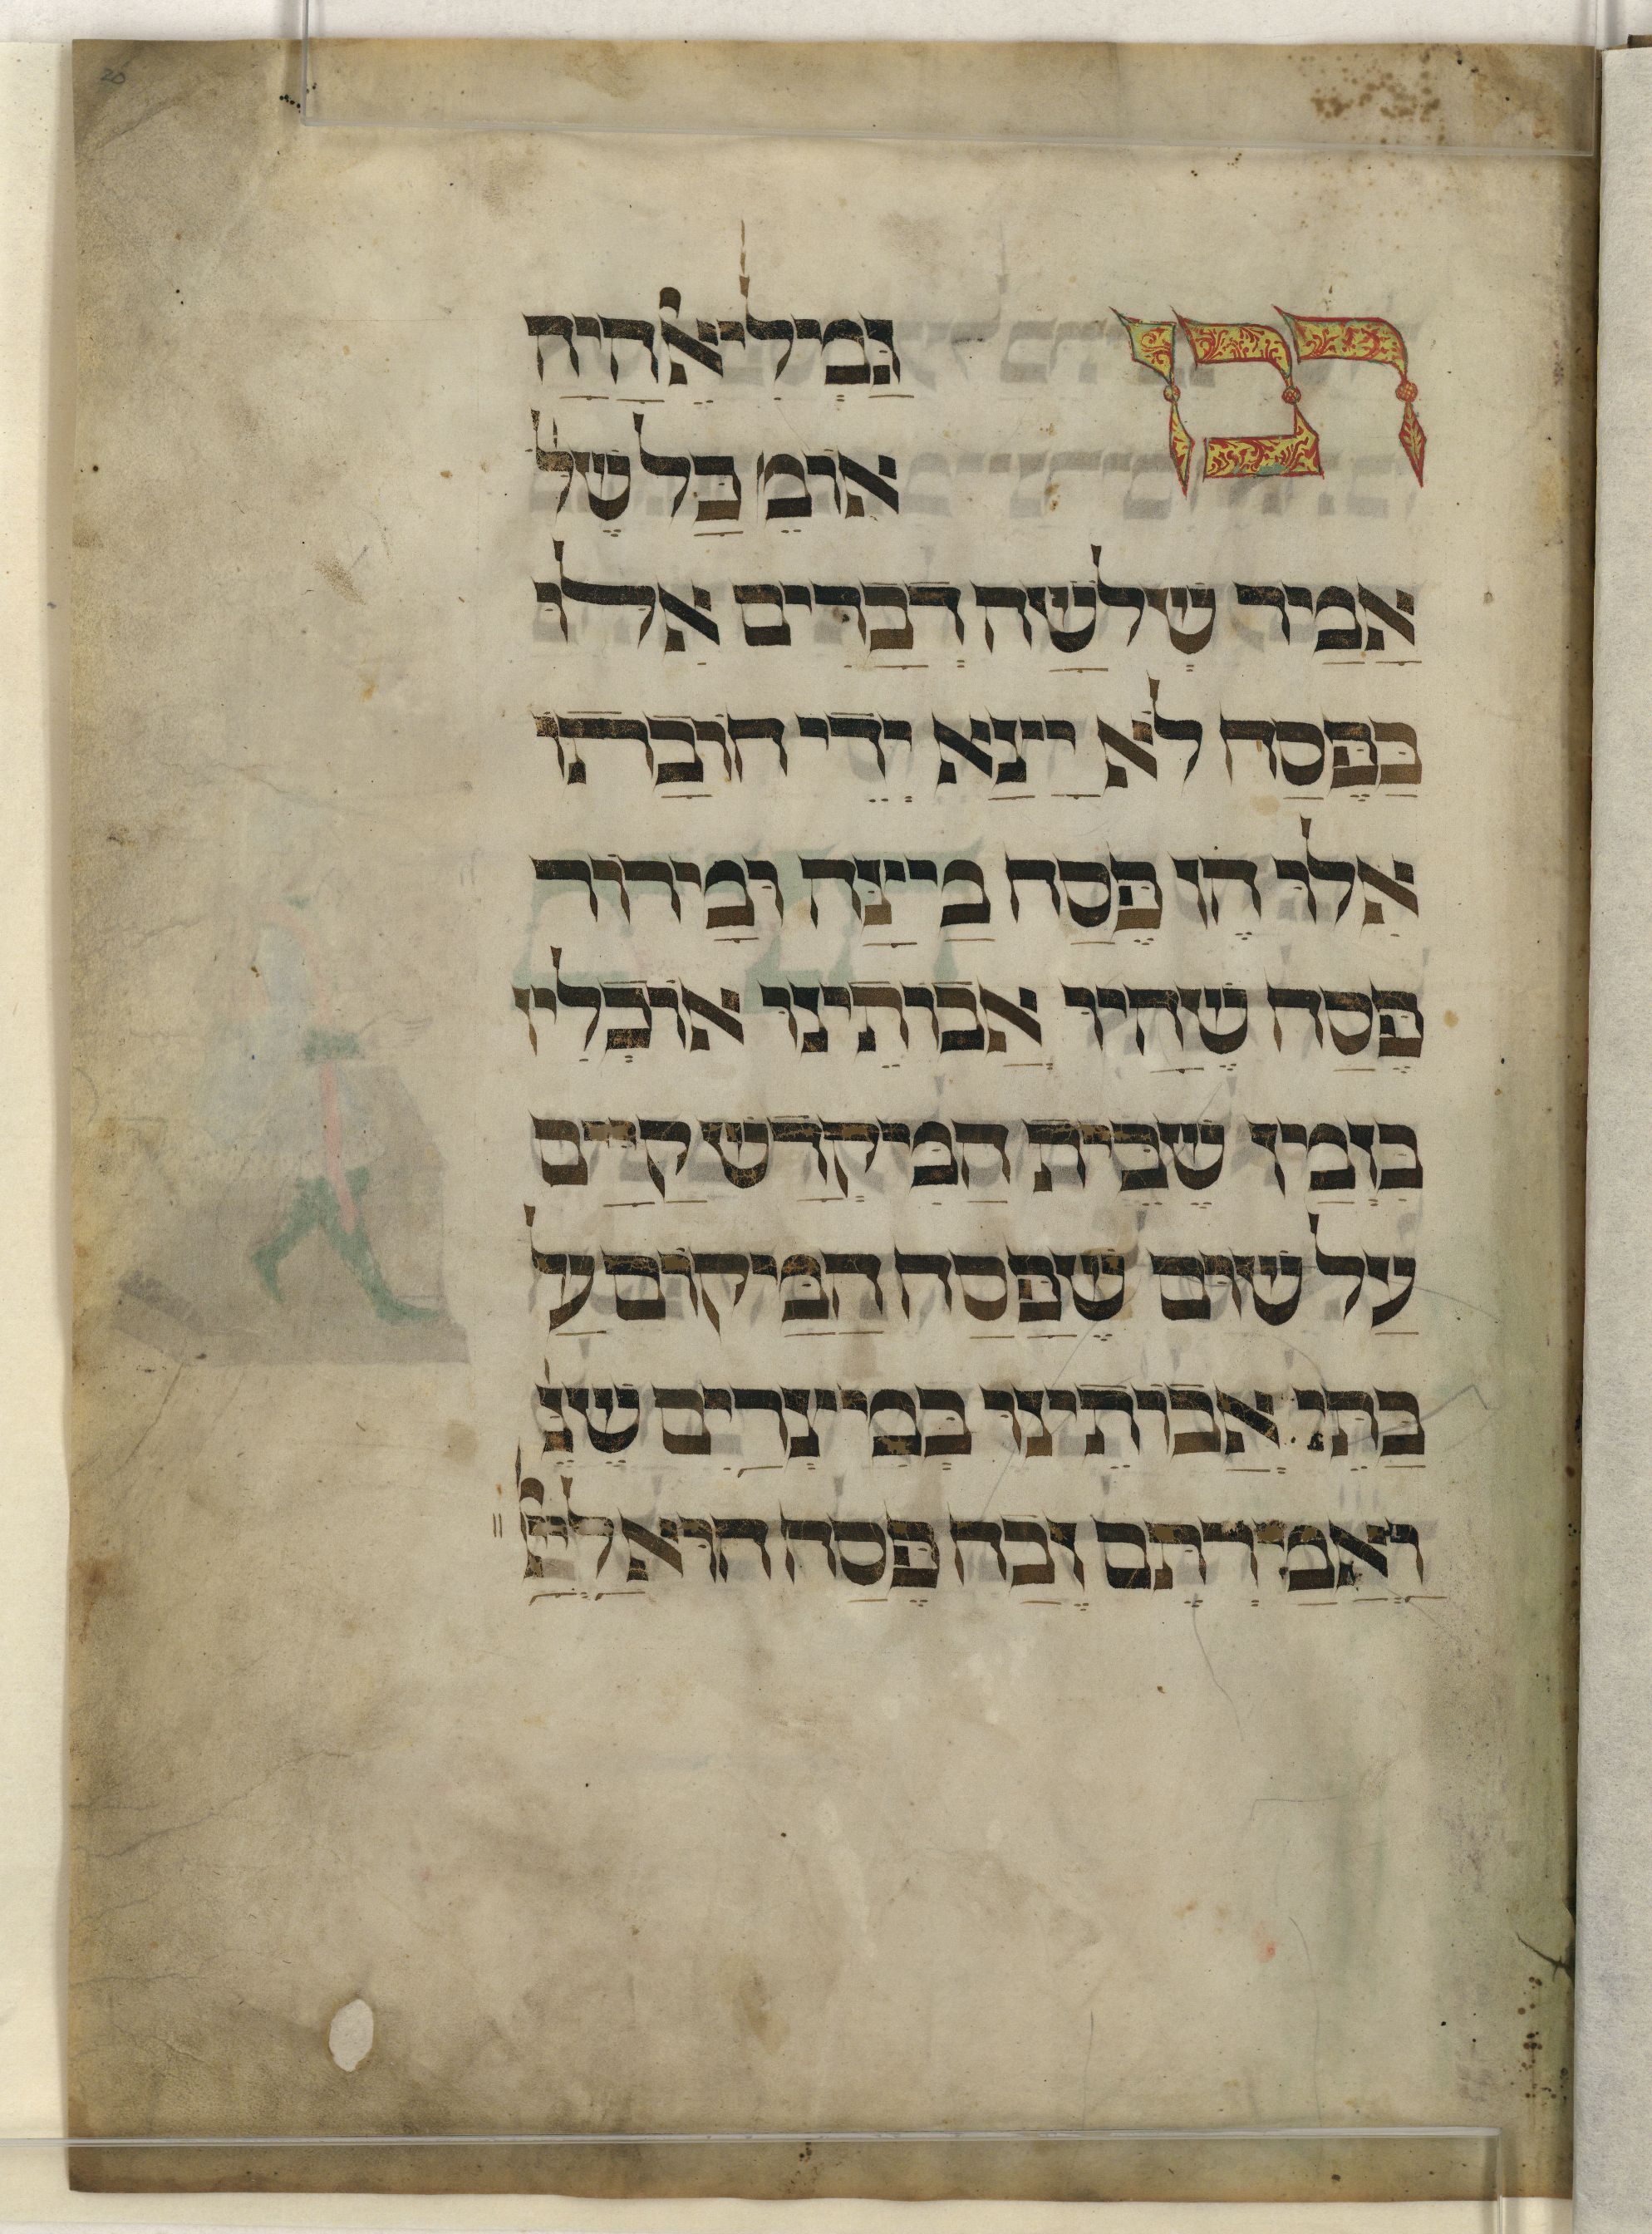 20
רבן גמליאל היה
אומ׳ כל של
אמר שלשה דברים אילו
בפסח לא יצא ידי חובתו
אלו הן פסח מצה ומרור
פסח שהיו אבותינו אוכלין
בזמן שבית המקדש קיים
על שום שפסח המקום על
בתי אבותינו במצרים שנ׳
ואמרתם זבח פסח הוא ליי